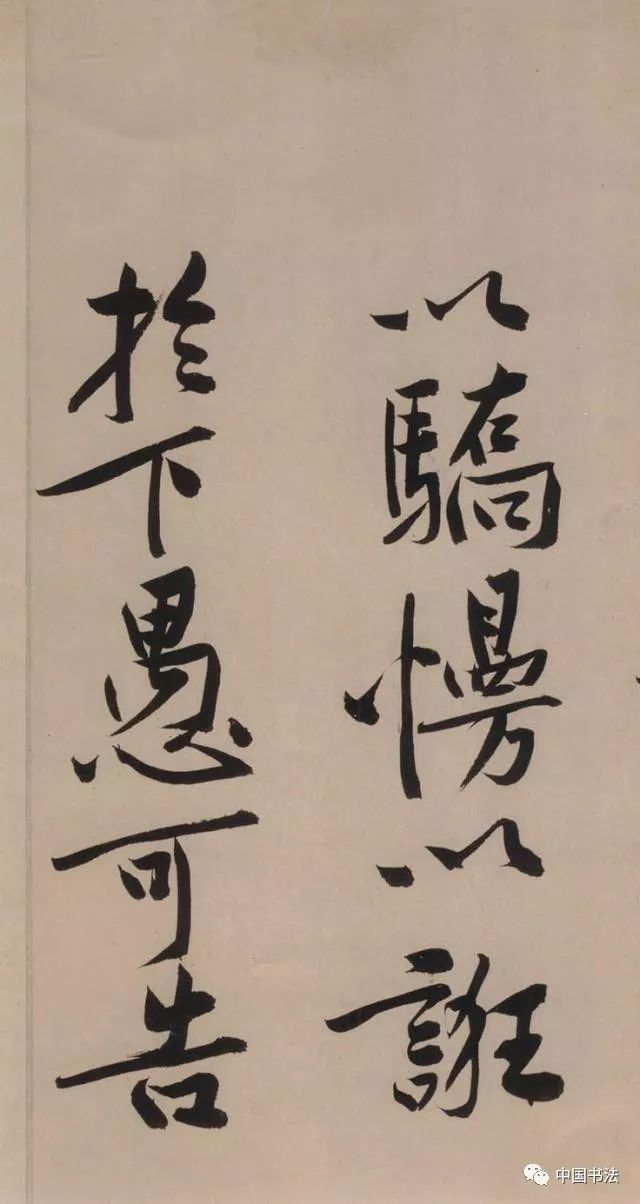 以驕慢以誑
於下愚可告
中国书法